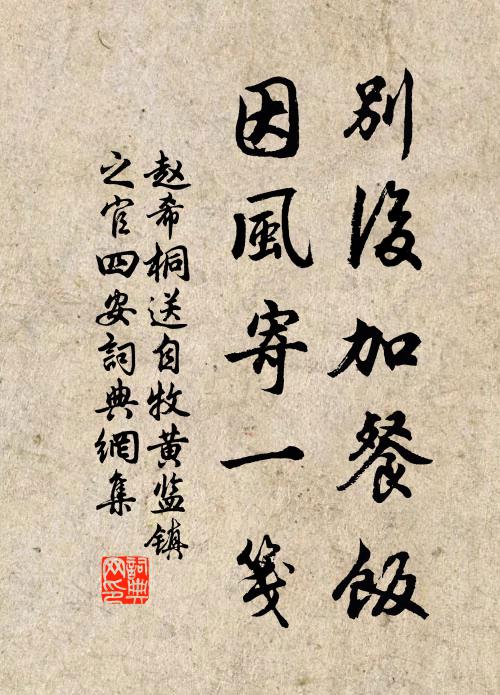 別後加餐飯
因風寄一箋
赵希桐送自牧黄监镇
之官四安詞典網集
詞典
网印